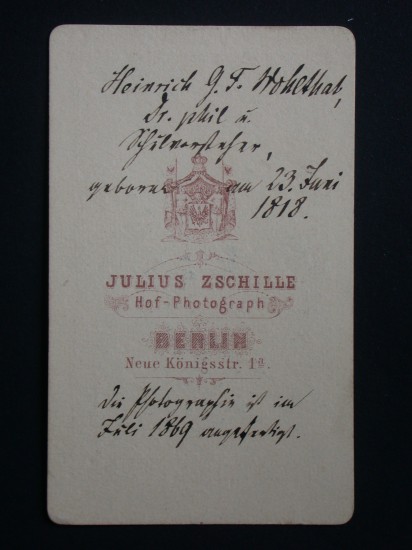 Heinrich G. F. Wohlthat,
Dr. phil u.
Schulvorsteher,
geboren am 23. Juni
1818.
JULIUS ZSCHILLE
Hof-Photograph
BERLIN
Neue Königsstr. 1a.
Die Photographie ist im
Juli 1869 angefertigt.